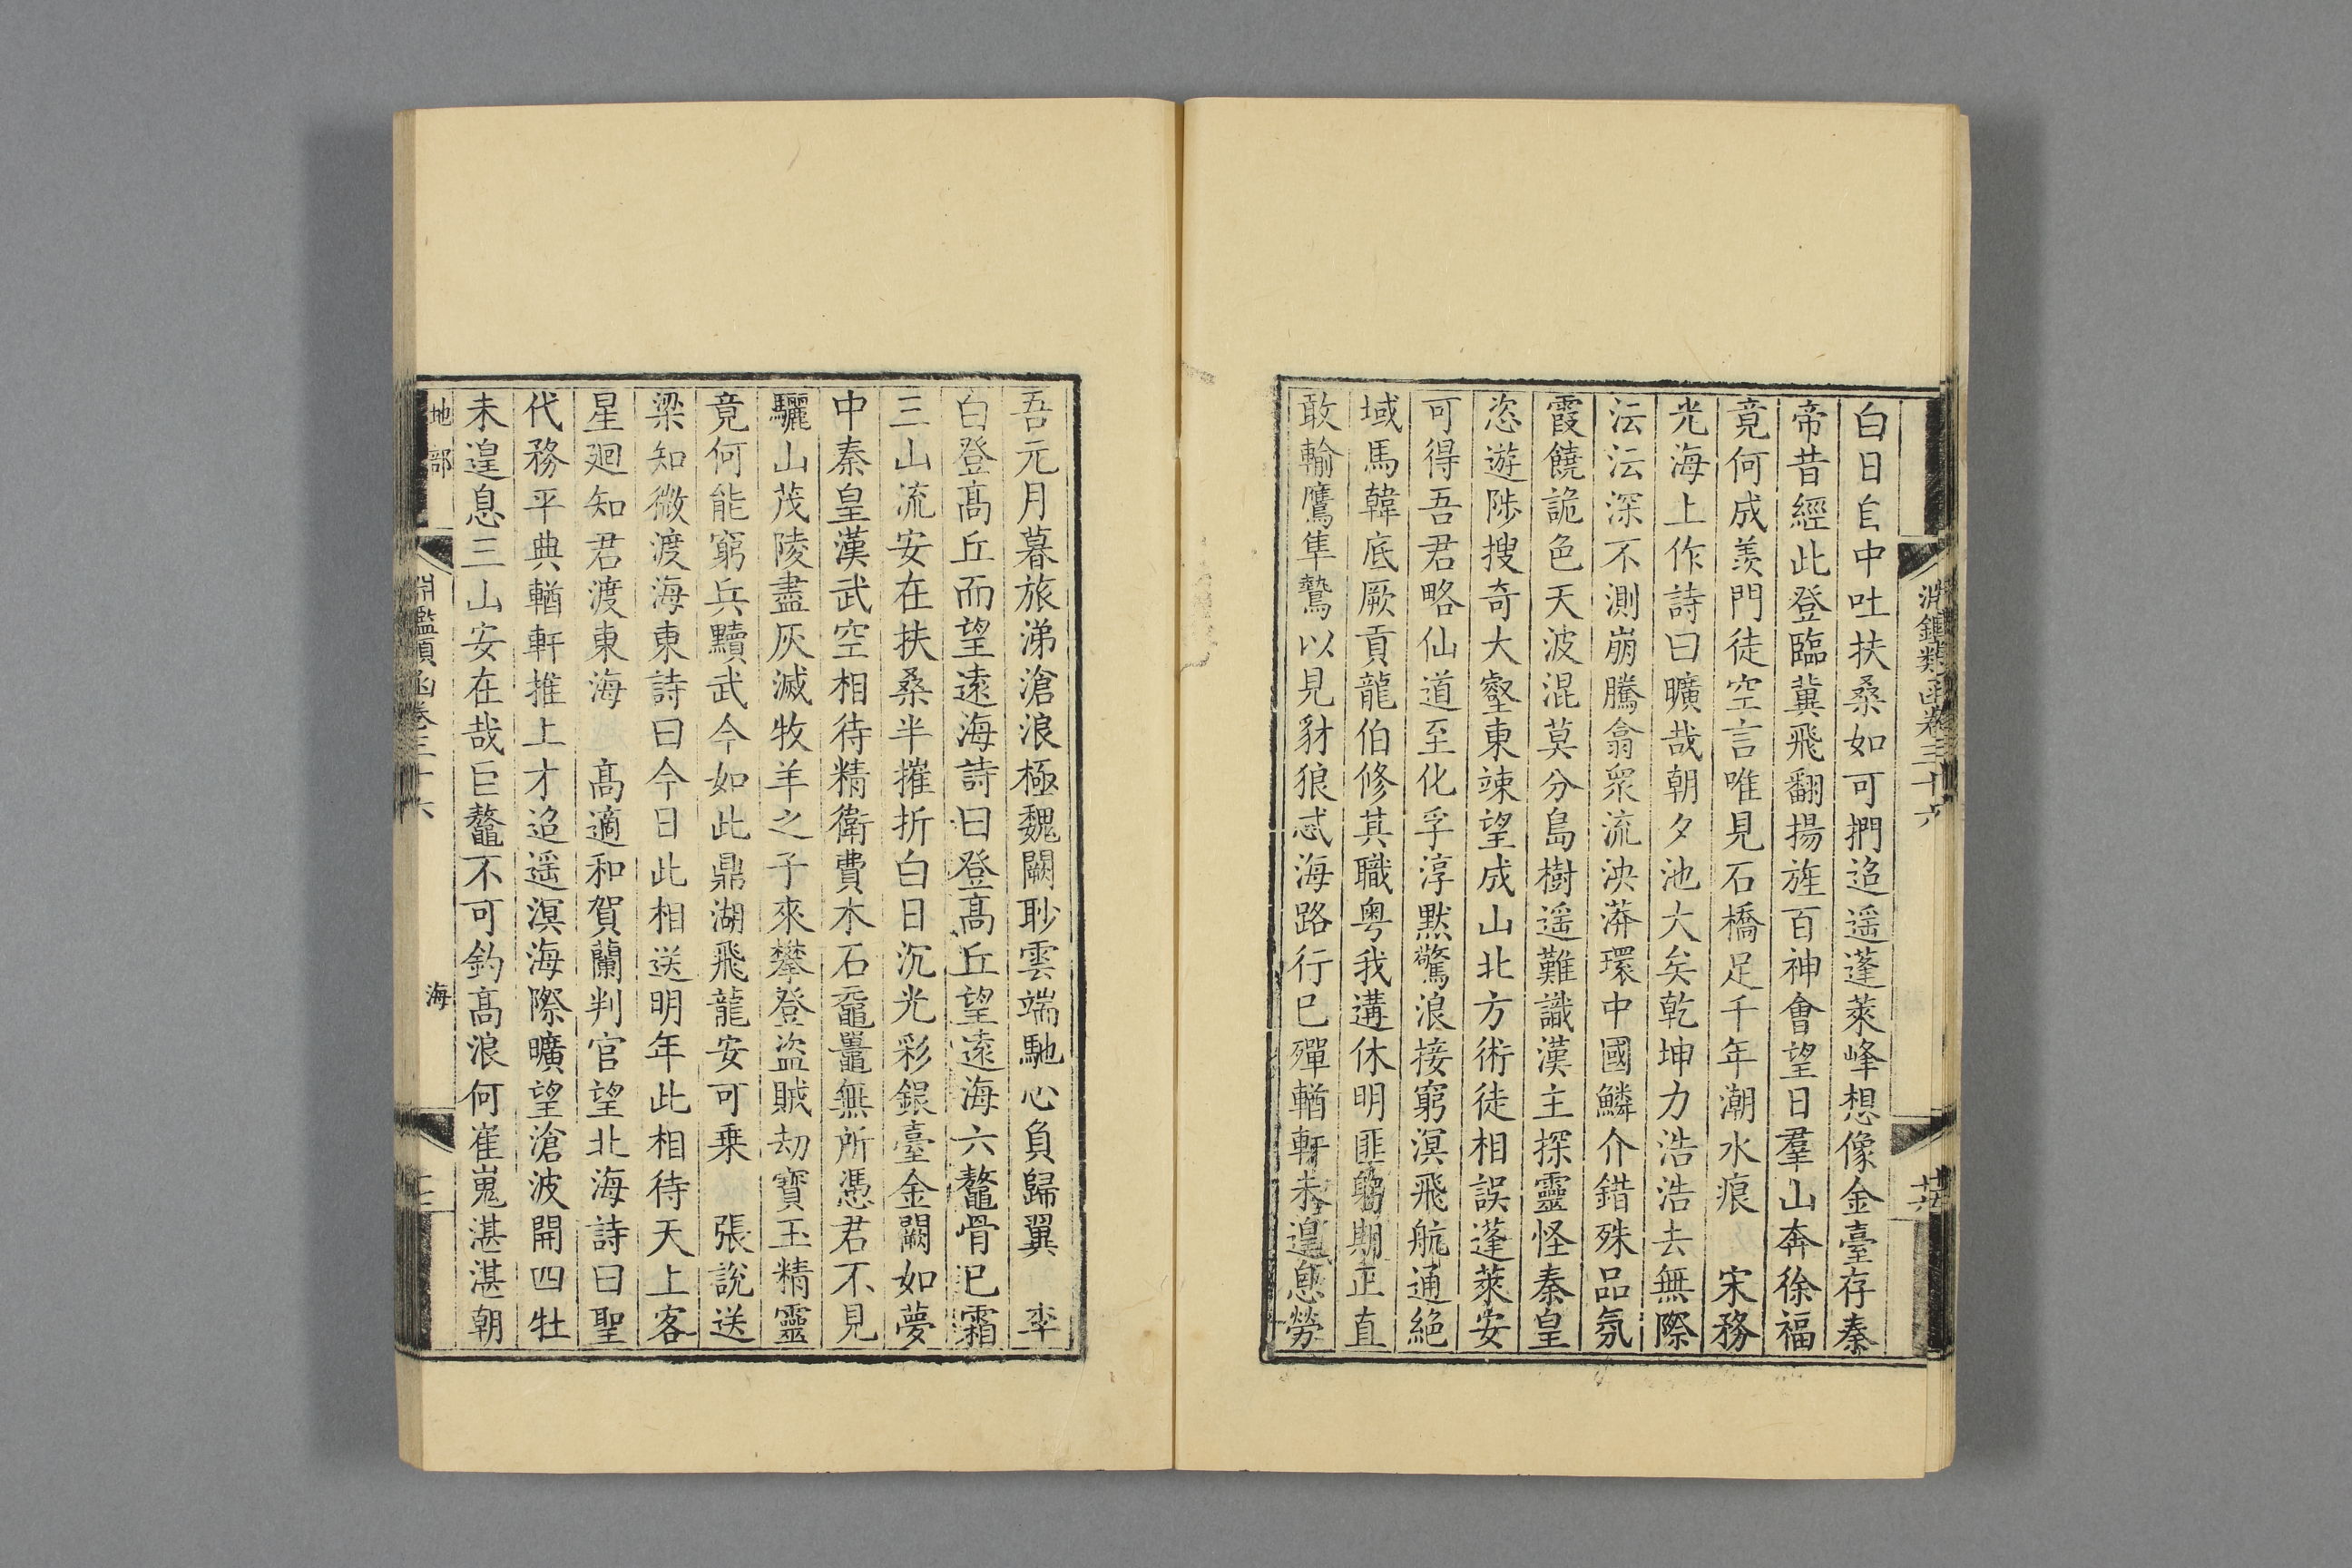 淵鑑類函卷三十六
白日自中吐扶桑如可捫迢遥蓬萊峰想像金臺存秦
帝昔經此登臨冀飛翻揚旌百神會望日羣山奔徐福
竟何成羨門徒空言唯見石橋足千年潮水痕 宋務
光海上作詩曰曠哉朝夕池大矣乾坤力浩浩去無際
沄沄深不測崩騰翕衆流泱漭環中國鱗介錯殊品氛
霞饒詭色天波混莫分島樹遥難識漢主探靈怪秦皇
恣遊陟搜奇大壑東竦望成山北方術徒相誤蓬萊安
可得吾君略仙道至化孚淳默驚浪接窮溟飛航通絶
域馬韓底厥貢龍伯修其職粤我遘休明匪躬期正直
敢輸鷹隼鷙以見豺狼忒海路行已殫輶軒未遑息勞
吾元月暮旅涕滄浪極魏闕眇雲端馳心負歸翼 李
白登高丘而望遠海詩曰登高丘望遠海六鼇骨已霜
三山流安在扶桑半摧折白日沉光彩銀臺金闕如夢
中秦皇漢武空相待精衛費木石黿鼉無所憑君不見
驪山茂陵盡灰滅牧羊之子來攀登盜賊劫寶玉精靈
竟何能窮兵黷武今如此鼎湖飛龍安可乗 張說送
梁知微渡海東詩曰今日此相送明年此相待天上客
星廻知君渡東海 高適和賀蘭判官望北海詩曰聖
代務平典輶軒推上才迢遥溟海際曠望滄波開四牡
未遑息三山安在哉巨鼇不可釣高浪何崔嵬湛湛朝
地部
淵鑑類函卷三十六
海